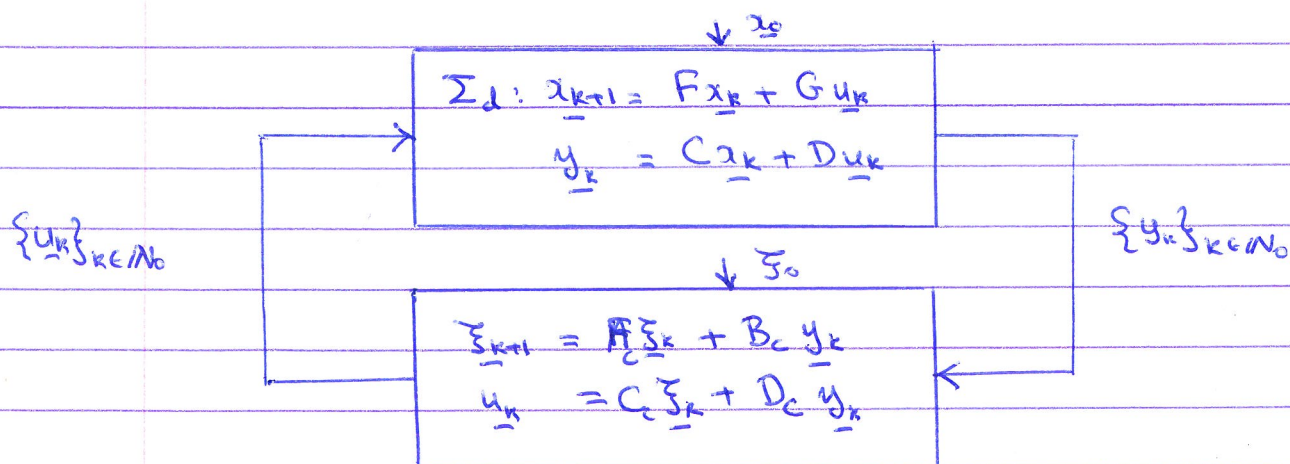 ↓ x₀
Σd : xₖ₊₁ = Fxₖ + Guₖ
yₖ = Cxₖ + Duₖ
{uₖ}ₖ∈ℕ₀
{yₖ}ₖ∈ℕ₀
↓ ξ₀
ξₖ₊₁ = A_c ξₖ + B_c yₖ
uₖ = C_c ξₖ + D_c yₖ